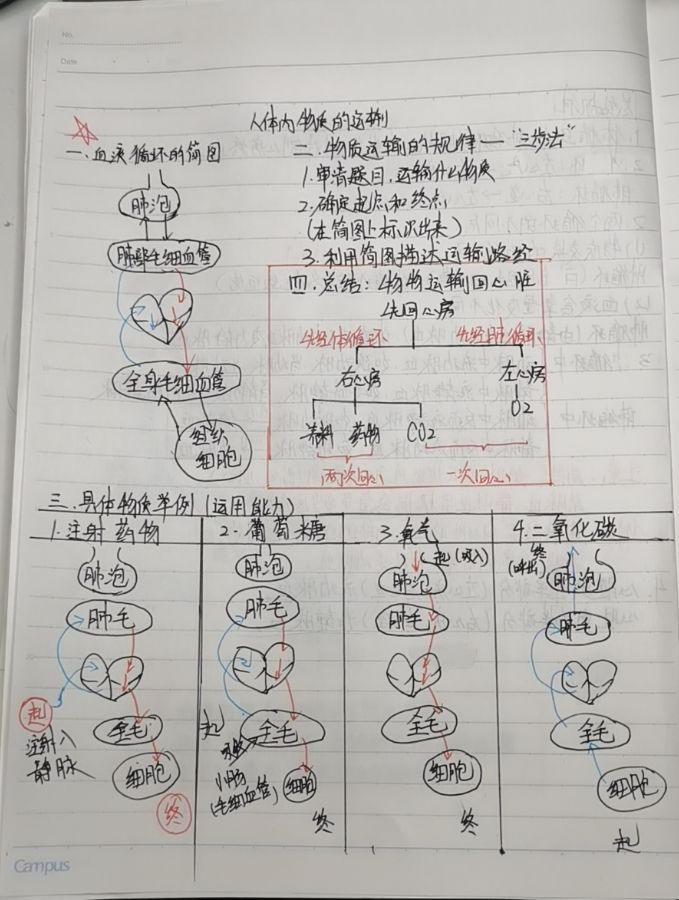 No.
Date
人体内物质的运输
一.血液循环的简图
肺泡
肺部毛细血管
全身毛细血管
组织
细胞
二.物质运输的规律——"三步法"
1.审清题目,运输什么物质
2.确定起点,和终点
(在简图上标次出来)
3.利用简图描述运输路径
四.总结:物物运输回心脏
先回心房
先经体循环
先经肺循环
右心房
左心房
养料 药物 CO2
O2
两次回心
一次回心
三.具体物质举例(运用能力)
1.注射药物
肺泡
肺毛
起
注射入
静脉
全毛
细胞
终
2.葡萄糖
肺泡
肺毛
起
全毛
吸收
小肠
(毛细血管)
细胞
终
3.氧气
起(吸入)
肺泡
肺毛
全毛
细胞
终
4.二氧化碳
终
(呼出)
肺泡
肺毛
全毛
细胞
起
Campus